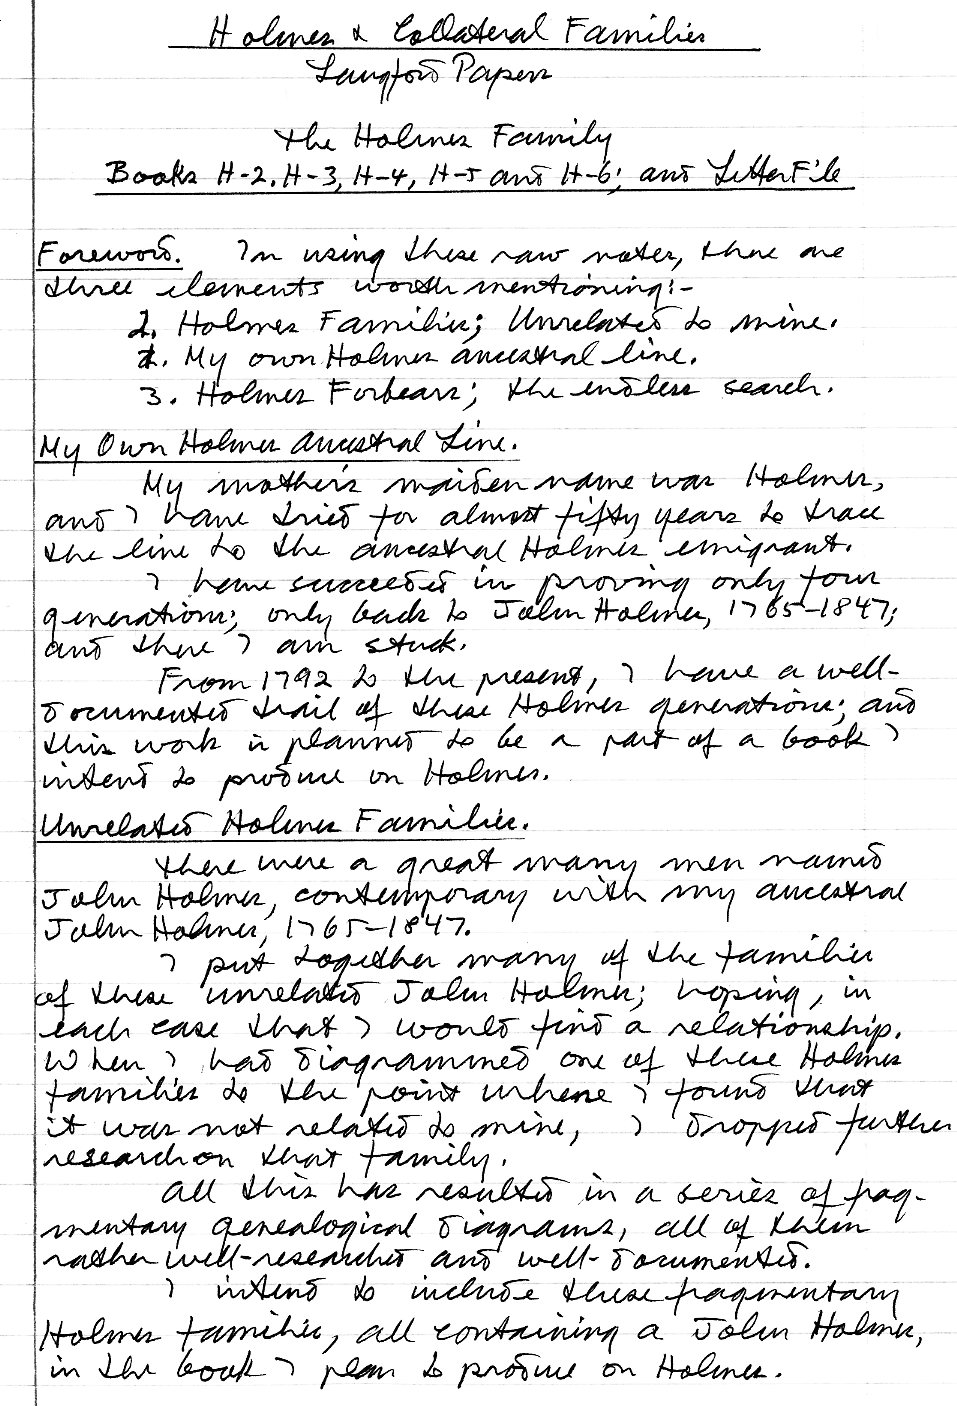 Holmes & Collateral Families
Langford Papers
The Holmes Family
Books H-2, H-3, H-4, H-5 and H-6; and Letter File
Foreword. In using these raw notes, there are
three elements worth mentioning:-
1. Holmes Families; Unrelated to mine.
2. My own Holmes ancestral line.
3. Holmes Forbears; the endless search.
My Own Holmes Ancestral Line.
My mother's maiden name was Holmes,
and I have tried for almost fifty years to trace
the line to the ancestral Holmes emigrant.
I have succeeded in proving only four
generations; only back to John Holmes, 1765-1847;
and there I am stuck.
From 1792 to the present, I have a well-
documented trail of these Holmes generations; and
this work is planned to be a part of a book I
intend to produce on Holmes.
Unrelated Holmes Families.
There were a great many men named
John Holmes, contemporary with my ancestral
John Holmes, 1765-1847.
I put together many of the families
of these unrelated John Holmes; hoping, in
each case that I would find a relationship.
When I had diagrammed one of these Holmes
families to the point where I found that
it was not related to mine, I dropped further
research on that family.
All this has resulted in a series of frag-
mentary genealogical diagrams, all of them
rather well-researched and well-documented.
I intend to include these fragmentary
Holmes families, all containing a John Holmes,
in the book I plan to produce on Holmes.